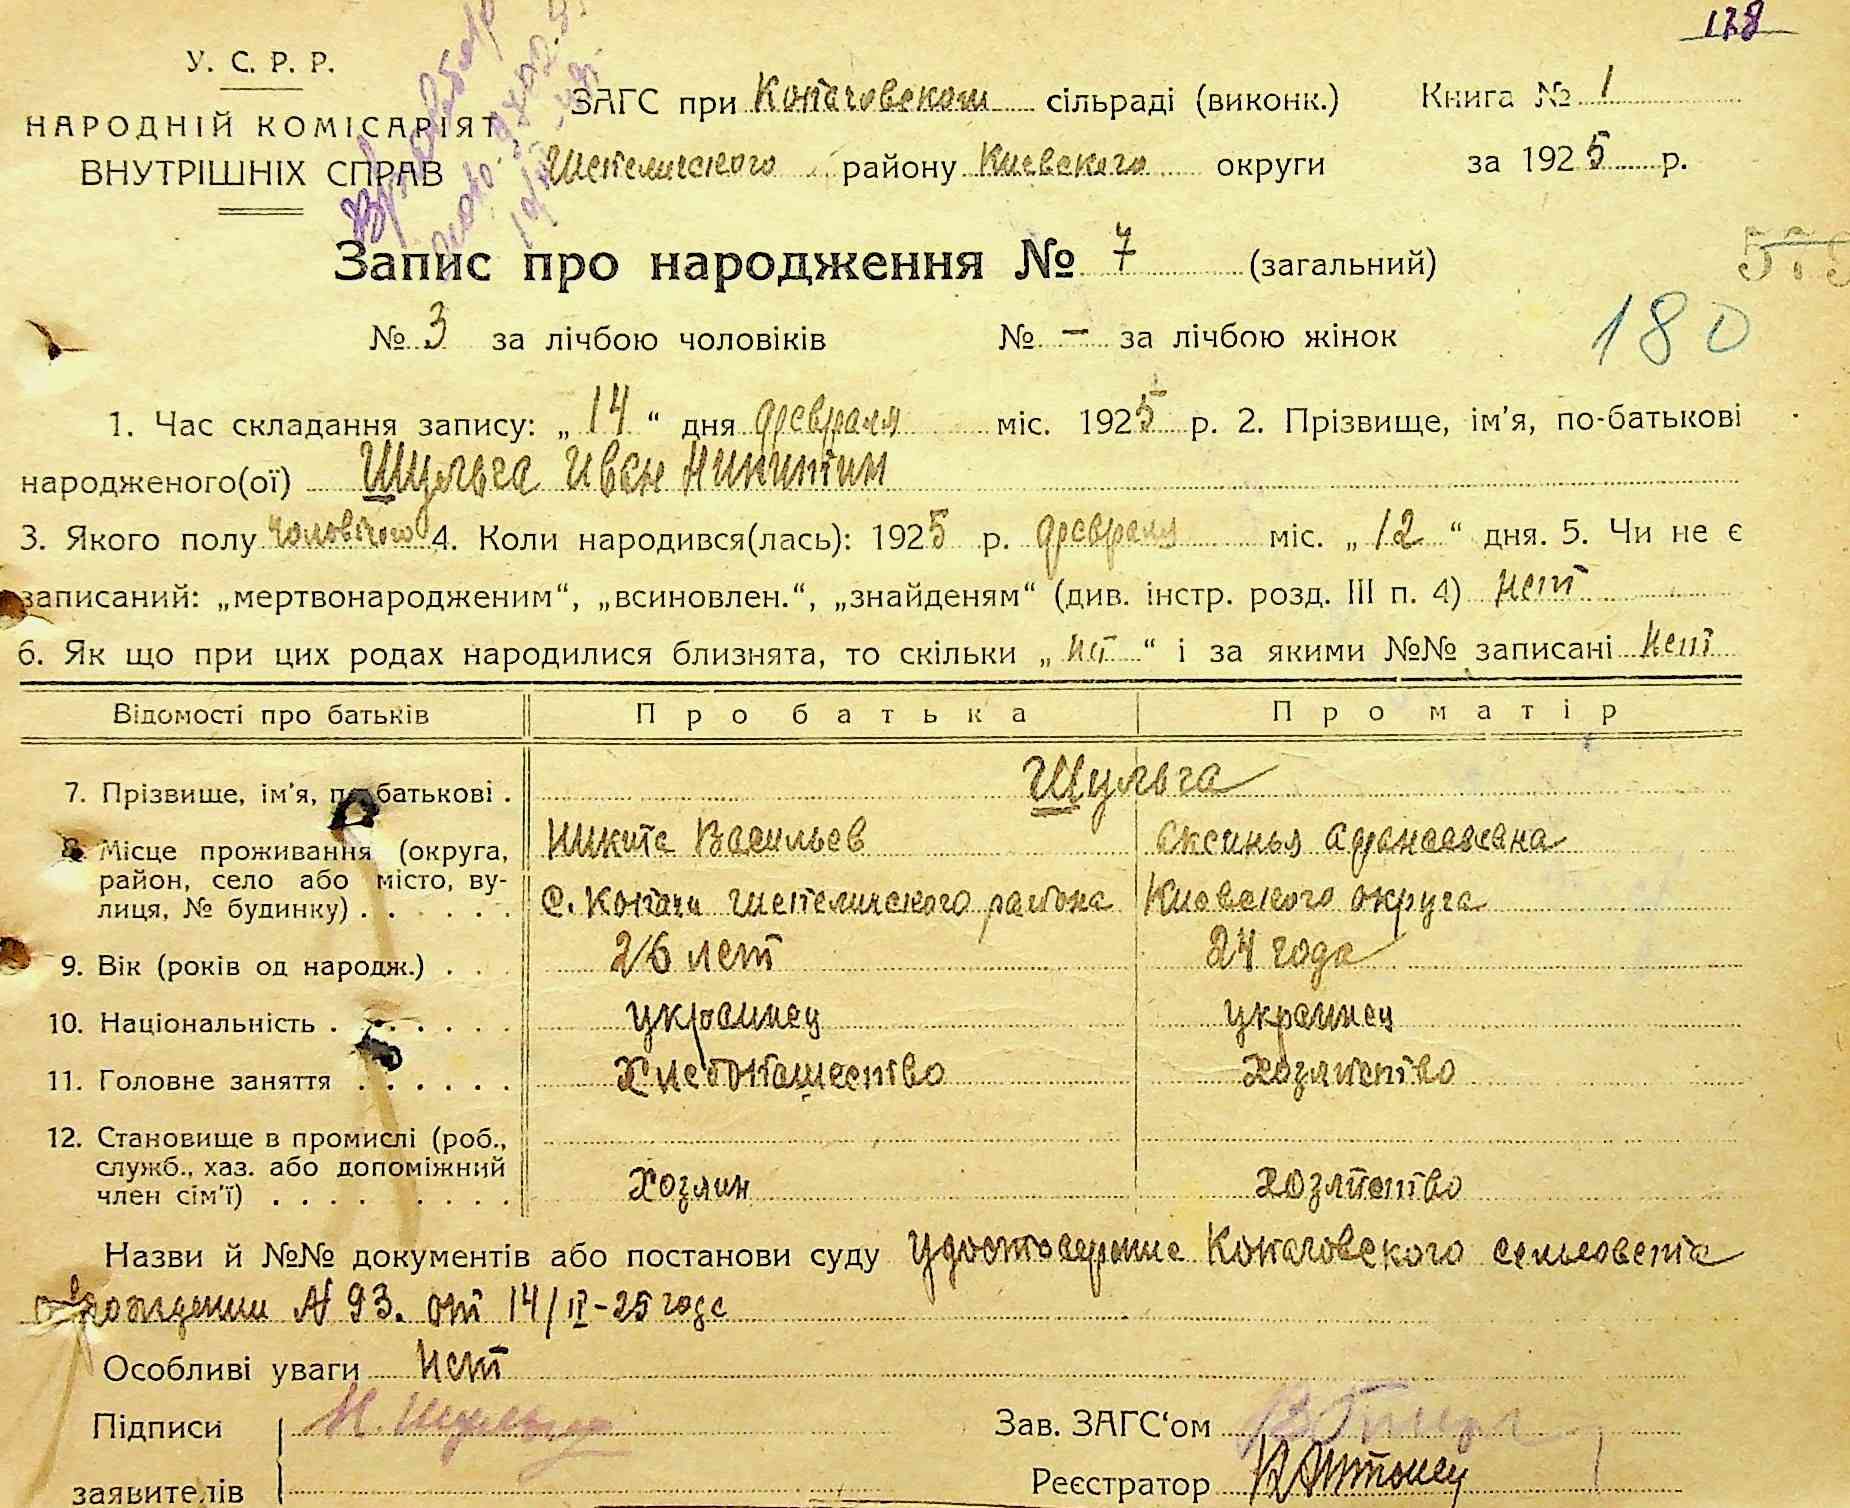 138
У. С. Р. Р.
НАРОДНІЙ КОМІСАРІЯТ
ВНУТРІШНІХ СПРАВ
ЗАГС при Копачовском сільраді (виконк.) Книга № 1
Шепеличского району Киевского округи за 1925 р.
Запис про народження № 7 (загальний)
№ 3 за лічбою чоловіків № — за лічбою жінок
180
1. Час складання запису: „14“ дня февраля міс. 1925 р. 2. Прізвище, ім'я, по-батькові
народженого(ої) Шульга Иван Никитин
3. Якого полу чоловічого 4. Коли народився(лась): 1925 р. февраля міс. „12“ дня. 5. Чи не є
записаний: „мертвонародженим“, „всиновлен.“, „знайденям“ (див. інстр. розд. III п. 4) нет
6. Як що при цих родах народилися близнята, то скільки „нет“ і за якими №№ записані нет
Відомості про батьків Про батька Про матір
7. Прізвище, ім'я, по батькові . Шульга
Никита Васильев Аксинья Афанасьевана
8. Місце проживання (округа, район, село або місто, вулиця, № будинку) . . . . . с. Копачи Шепеличского района Киевского округа
9. Вік (років од народж.) . . . 26 лет 24 года
10. Національність . . . . . . . украинец украинец
11. Головне заняття . . . . . . Хлебопашество хозяйство
12. Становище в промислі (роб., служб., хаз. або допоміжний член сім'ї) . . . . . . . . Хозяин хозяйство
Назви й №№ документів або постанови суду Удостоверение Копачовского сельсовета
о рождении № 93. от 14/II-25 года
Особливі уваги нет
Підписи Н. Шульга Зав. ЗАГС'ом
заявителів Реєстратор